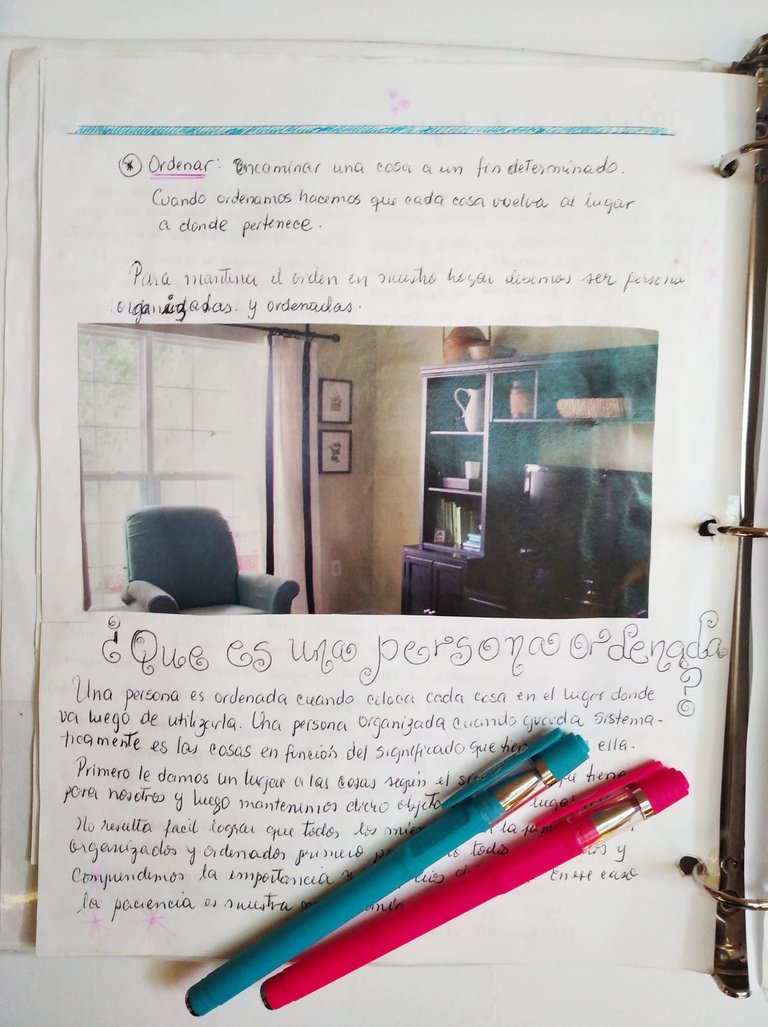 Ordenar: Encaminar una cosa a un fin determinado.
Cuando ordenamos hacemos que cada cosa vuelva al lugar
a donde pertenece.
Para mantener el orden en nuestro hogar debemos ser persona
organizadas y ordenadas.
¿Que es una persona ordenada?
Una persona es ordenada cuando coloca cada cosa en el lugar donde
va luego de utilizarla. Una persona organizada cuando guarda sistema-
ticamente es las cosas en función del significado que ella.
Primero le damos un lugar a las cosas según el que tiene
para nosotros y luego mantenemos dicho lugar
No resulta facil lograr que todos los la
organizados y ordenados primero todos y
comprendemos la importancia En ese caso
la paciencia es nuestra